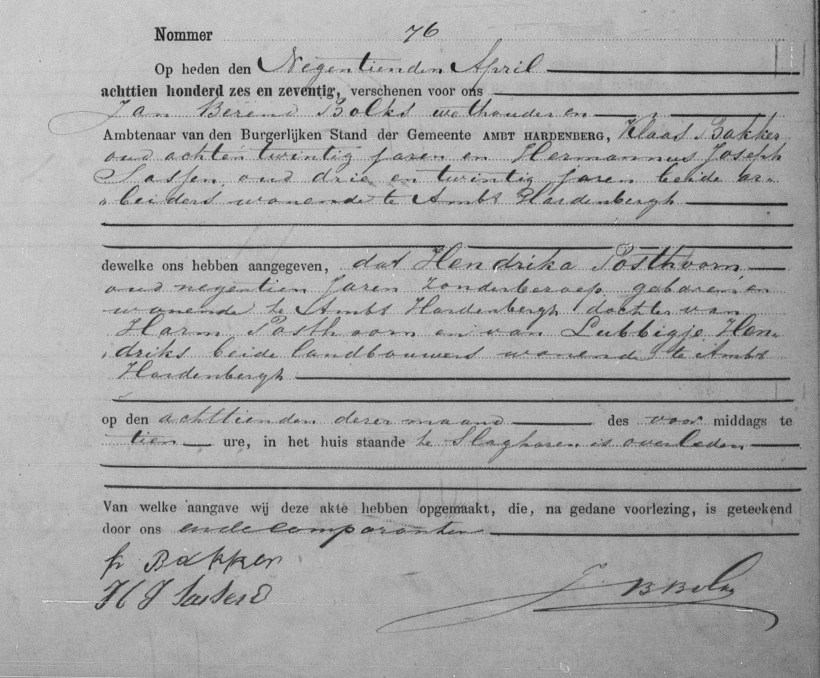 Nommer 76
Op heden den Negentienden April
achttien honderd zes en zeventig, verschenen voor ons
Jan Berend Bolks wethouder en
Ambtenaar van den Burgerlijken Stand der Gemeente AMBT HARDENBERG, Klaas Bakker
oud achtentwintig jaren en Hermannus Joseph
Sassen oud drie en twintig jaren beide ar-
beiders wonende te Ambt Hardenbergh
dewelke ons hebben aangegeven, dat Hendrika Posthoorn
oud negentien jaren zonder beroep geboren en
wonende te Ambt Hardenbergh dochter van
Harm Posthoorn en van Lubbigje Hen-
driks beide landbouwers wonende te Ambt
Hardenbergh
op den achttienden dezer maand des voor middags te
tien ure, in het huis staande te Slagharen is overleden
Van welke aangave wij deze akte hebben opgemaakt, die, na gedane voorlezing, is geteekend
door ons en de comparanten
Bakker
H J Sassen J B Bolks